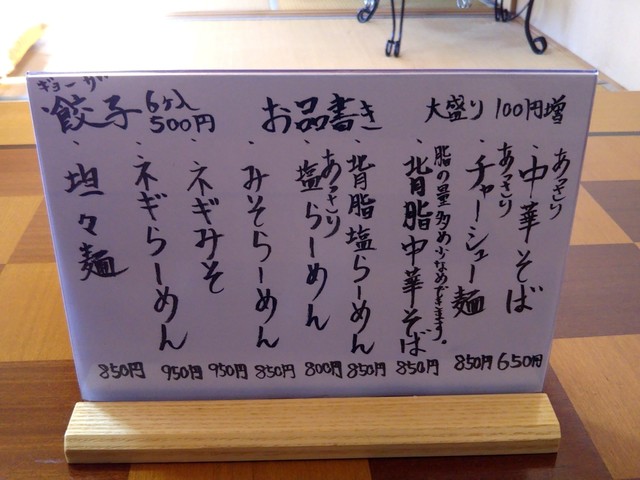 お品書き
大盛り 100円増
あっさり
・中華そば 650円
あっさり
・チャーシュー麺 850円
脂の量多め少なめできます。
・背脂中華そば 850円
・背脂塩らーめん 850円
あっさり
・塩らーめん 800円
・みそらーめん 850円
・ネギみそ 950円
・ネギらーめん 950円
・坦々麺 850円
ギョーザ
餃子 6ヶ入
500円